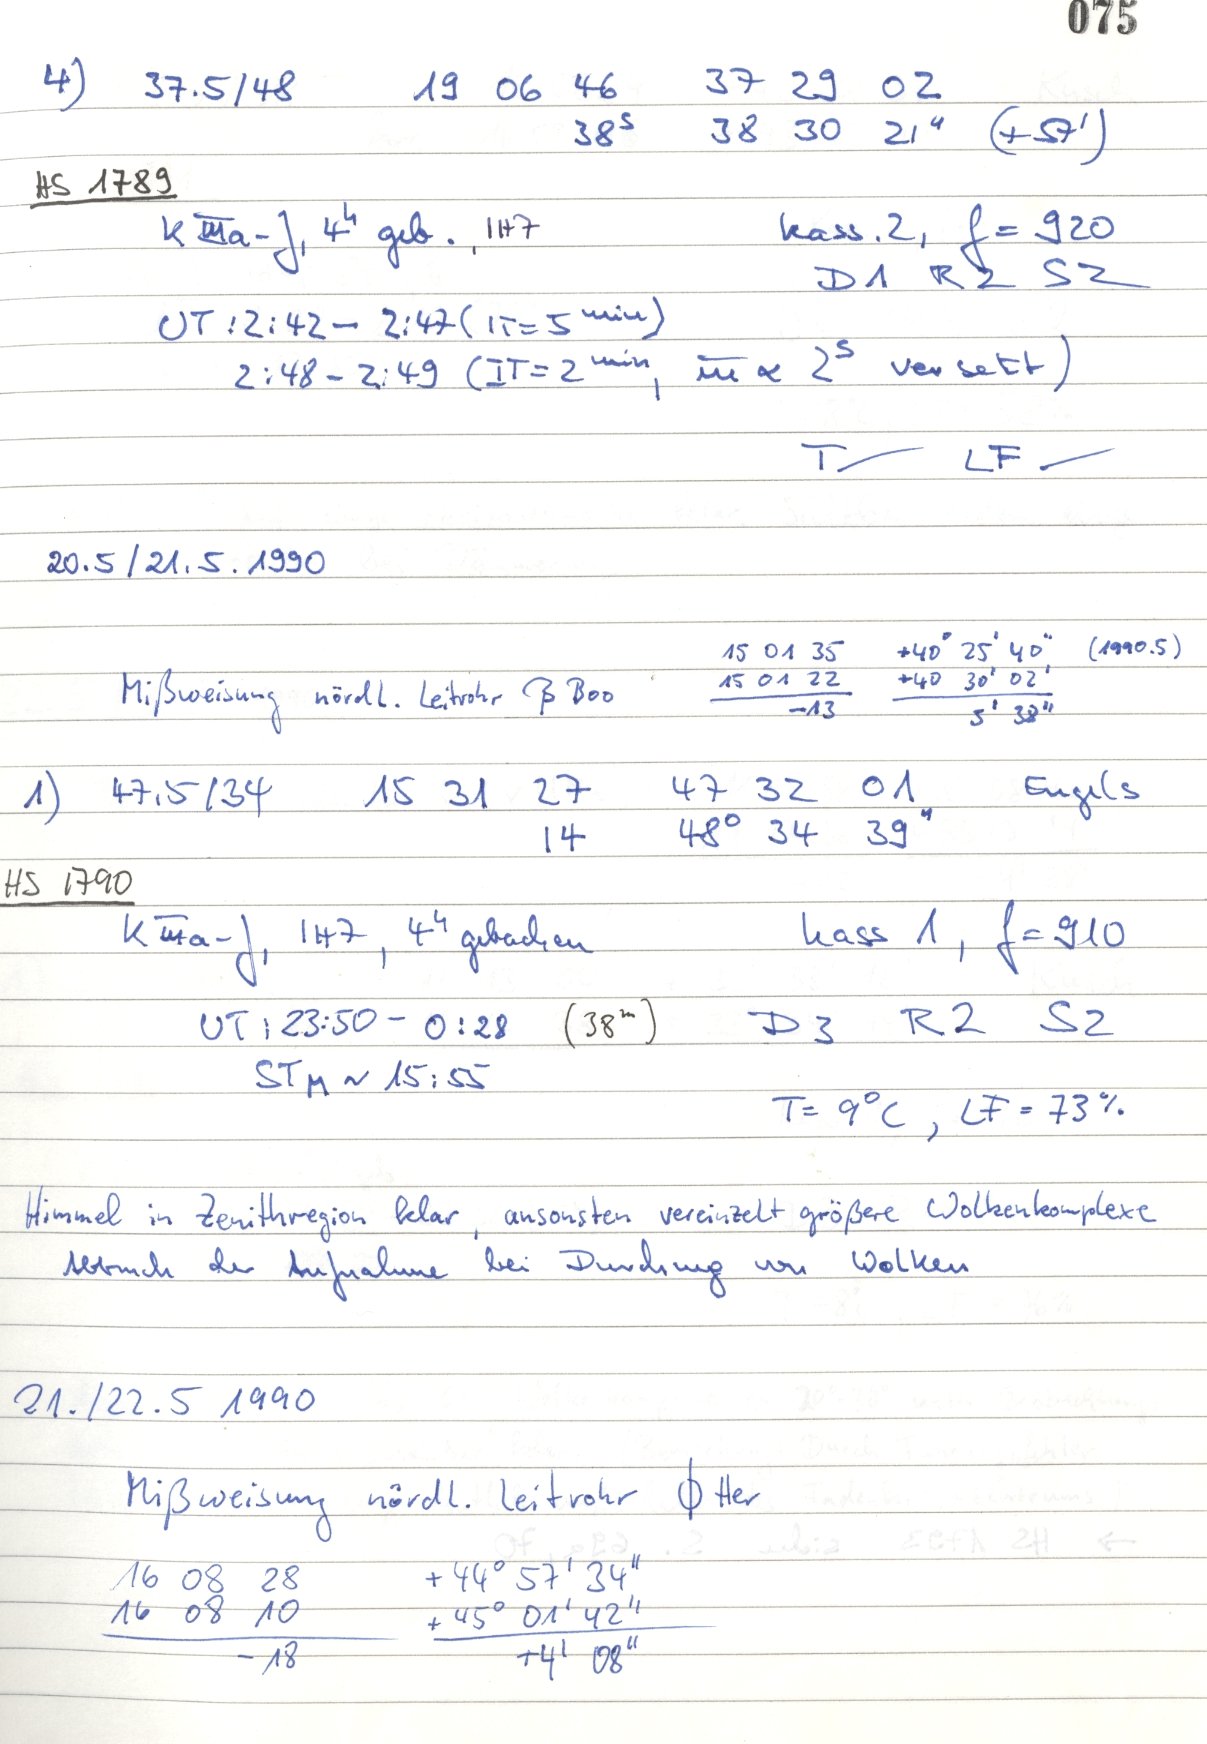 075
4) 37.5/48 19 06 46 37 29 02
38ˢ 38 30 21" (+57')
HS 1789
K IIIa-J, 4ʰ geb., 1H7 Kass. 2, f = 920
D1 R2 S2
UT: 2:42 - 2:47 (IT = 5 min)
2:48 - 2:49 (IT = 2 min, in α 2ˢ versetzt)
T — LF —
20.5/21.5.1990
15 01 35 +40° 25' 40" (1990.5)
Mißweisung nördl. Leitrohr β Boo 15 01 22 +40 30' 02'
-13 5' 38"
1) 47.5/34 15 31 27 47 32 01 Engels
14 48° 34 39"
HS 1790
K IIIa-J, 1H7, 4ʰ gebacken Kass 1, f = 910
UT: 23:50 - 0:28 (38ᵐ) D3 R2 S2
STM ~ 15:55
T = 9°C, LF = 73%
Himmel in Zenithregion klar, ansonsten vereinzelt größere Wolkenkomplexe
Abbruch der Aufnahme bei Durchzug von Wolken
21./22.5 1990
Mißweisung nördl. Leitrohr ϕ Her
16 08 28 +44° 57' 34"
16 08 10 +45° 01' 42"
-18 +4' 08"